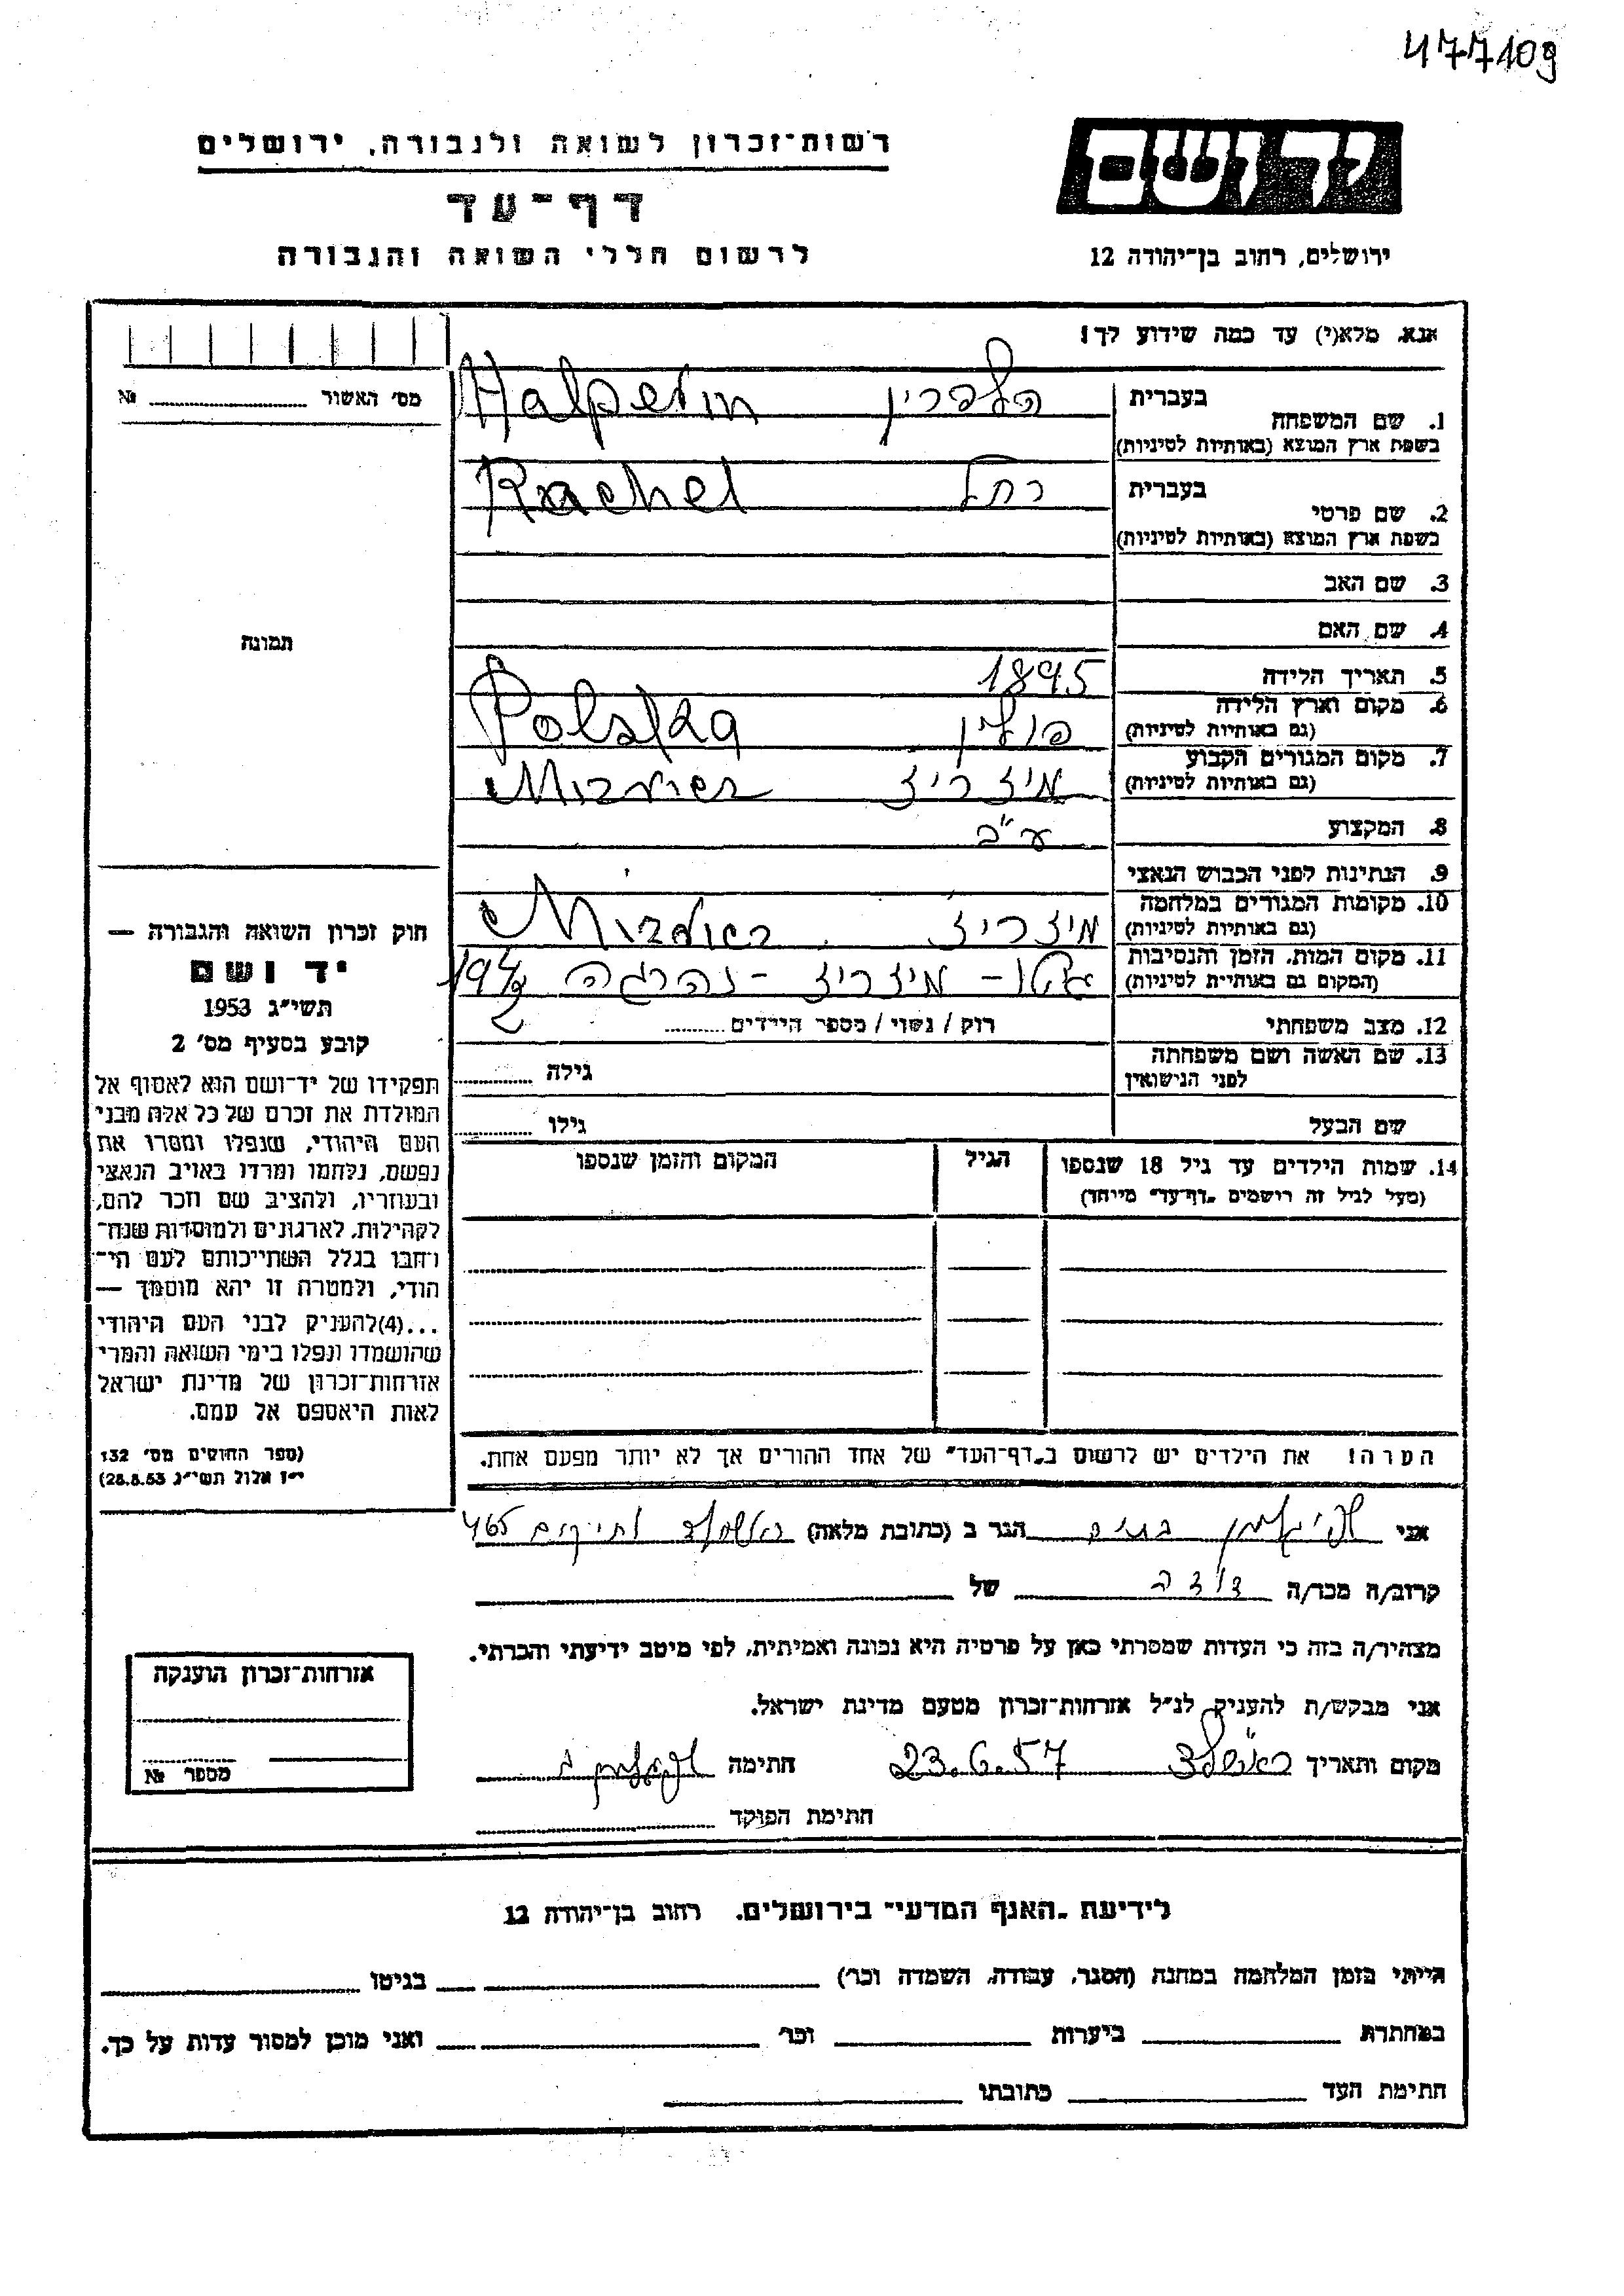 477109
יד ושם
ירושלים, רחוב בן־יהודה 12
רשות־זכרון לשואה ולגבורה, ירושלים
דף־עד
לרשום חללי השואה והגבורה
אנא, מלא(י) עד כמה שידוע לך!
מס' האשור № 
בעברית
1. שם המשפחה
בשפת ארץ המוצא (באותיות לטיניות)
הלפרין Halperin
בעברית
2. שם פרטי
בשפת ארץ המוצא (באותיות לטיניות)
רחל Rachel
3. שם האב
4. שם האם
5. תאריך הלידה 1895
6. מקום וארץ הלידה
(גם באותיות לטיניות)
פולין Polska
7. מקום המגורים הקבוע
(גם באותיות לטיניות)
מיזריץ
8. המקצוע ע"ב
9. הנתינות לפני הכבוש הנאצי
10. מקומות המגורים במלחמה
(גם באותיות לטיניות)
מיזריץ
11. מקום המות, הזמן והנסיבות
(המקום גם באותיות לטיניות)
גטו - מיזריץ - נהרגה 1942
12. מצב משפחתי רוק / נשוי / מספר הילדים
13. שם האשה ושם משפחתה
לפני הנישואין
גילה
שם הבעל גילו
14. שמות הילדים עד גיל 18 שנספו
(מעל לגיל זה רושמים „דף־עד" מייחד)
הגיל
המקום והזמן שנספו
הערה! את הילדים יש לרשום ב„דף־העד" של אחד ההורים אך לא יותר מפעם אחת.
תמונה
חוק זכרון השואה והגבורה —
יד ושם
תשי"ג 1953
קובע בסעיף מס' 2
תפקידו של יד־ושם הוא לאסוף אל
המולדת את זכרם של כל אלה מבני
העם היהודי, שנפלו ומסרו את
נפשם, נלחמו ומרדו באויב הנאצי
ובעוזריו, ולהציב שם וזכר להם,
לקהילות, לארגונים ולמוסדות שנח־
רחבו בגלל השתייכותם לעם הי־
הודי, ולמטרה זו יהא מוסמך —
...(4)להעניק לבני העם היהודי
שהושמדו ונפלו בימי השואה והמרי
אזרחות־זכרון של מדינת ישראל
לאות היאספם אל עמם.
(ספר החוקים מס' 132
י"ז אלול תשי"ג 28.8.53)
אני הגר ב (כתובת מלאה) ותיקים 465
קרוב/ה מכר/ה דודה של
מצהיר/ה בזה כי העדות שמסרתי כאן על פרטיה היא נכונה ואמיתית, לפי מיטב ידיעתי והכרתי.
אני מבקש/ת להעניק לנ"ל אזרחות־זכרון מטעם מדינת ישראל.
מקום ותאריך ראשל"צ 23.6.57 חתימה
חתימת הפוקד
אזרחות־זכרון הוענקה
מספר №
לידיעת „האגף המדעי" בירושלים, רחוב בן־יהודה 12
הייתי בזמן המלחמה במחנה (הסגר, עבודה, השמדה וכר') בגיטו
במחתרת ביערות וכר' ואני מוכן למסור עדות על כך.
חתימת העד כתובתו